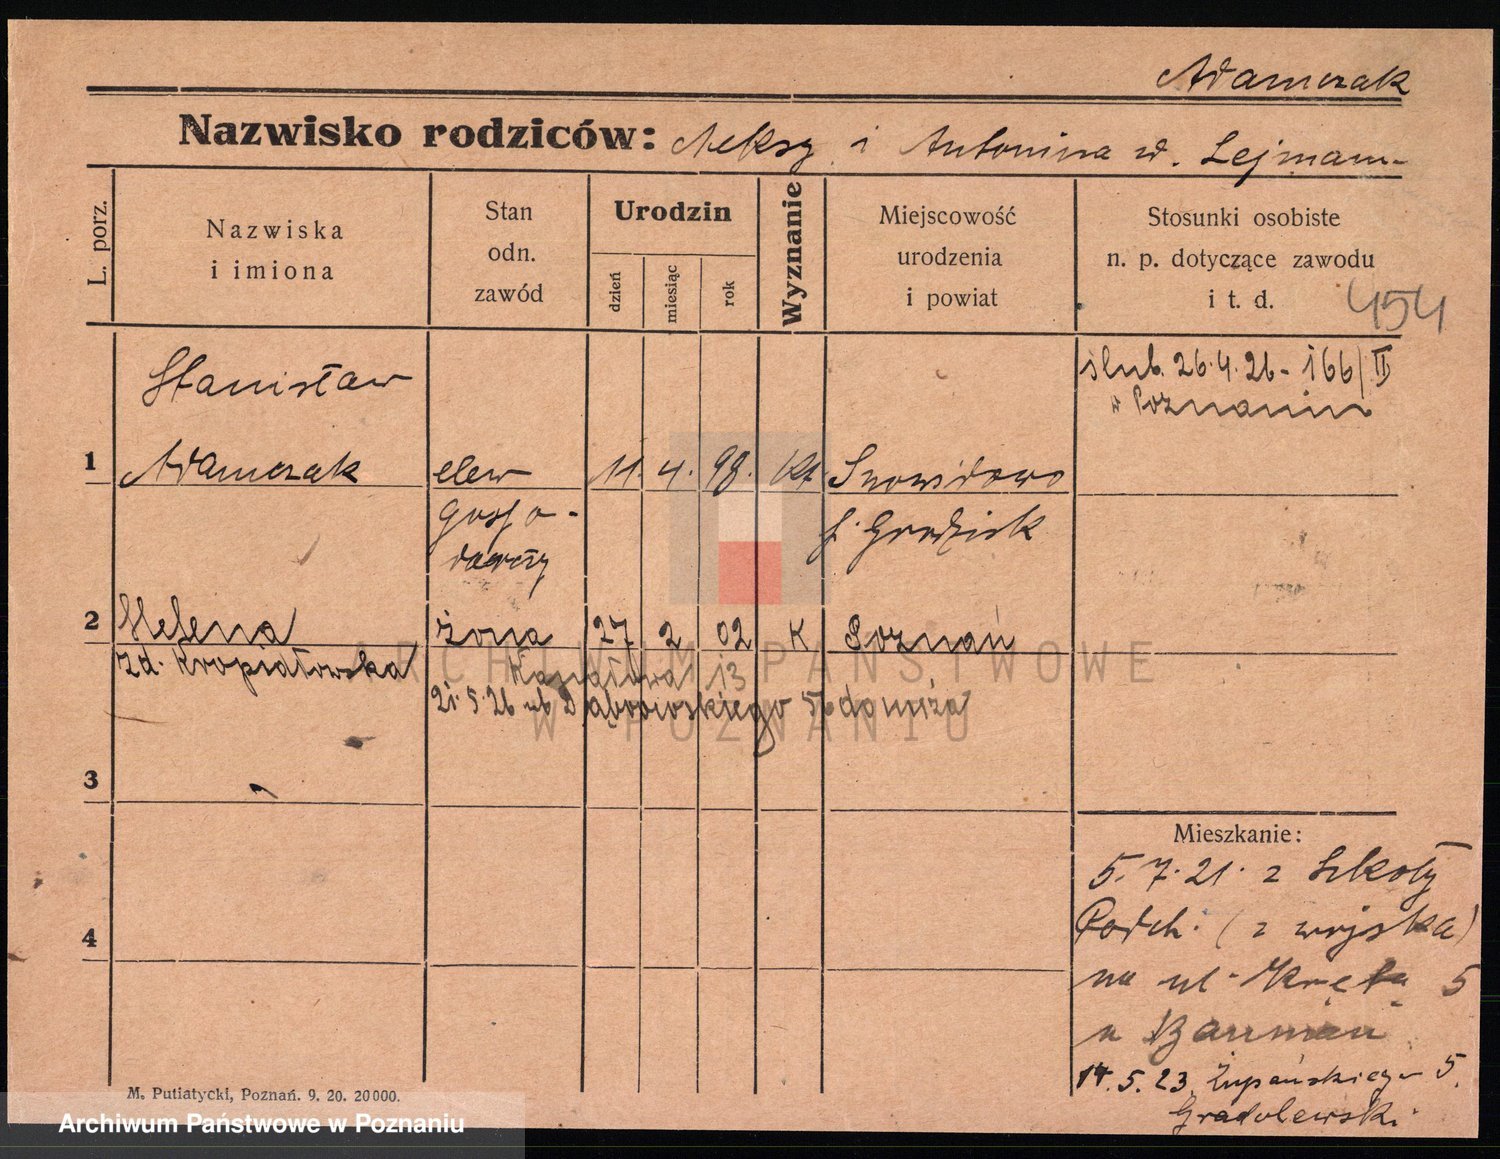 Adamczak
Nazwisko rodziców: Aleksy i Antonina d. Lejmann
L. porz.
Nazwiska
i imiona
Stan
odn.
zawód
Urodzin
dzień
miesiąc
rok
Wyznanie
Miejscowość
urodzenia
i powiat
Stosunki osobiste
n. p. dotyczące zawodu
i t. d.
454
ślub. 26.4.26 - 166/II
w Poznaniu
Stanisław
1 Adamczak elew 11. 4. 98. kt. Snowidowo
gospo-
darczy
p. Grodzisk
2 Helena żona 27 2 02 K Poznań
zd. Kropiatowska
Kanałowa 13
21.5.26 ul. Dąbrowskiego 56
3
4
Mieszkanie:
5. 7. 21. z Szkoły
Podch. (z wojska)
na ul. Kręta 5
u Bauman
14. 5. 23. Żupańskiego 5.
Gradolewski
M. Putiatycki, Poznań. 9. 20. 20000.
ARCHIWUM PAŃSTWOWE
W POZNANIU
Archiwum Państwowe w Poznaniu